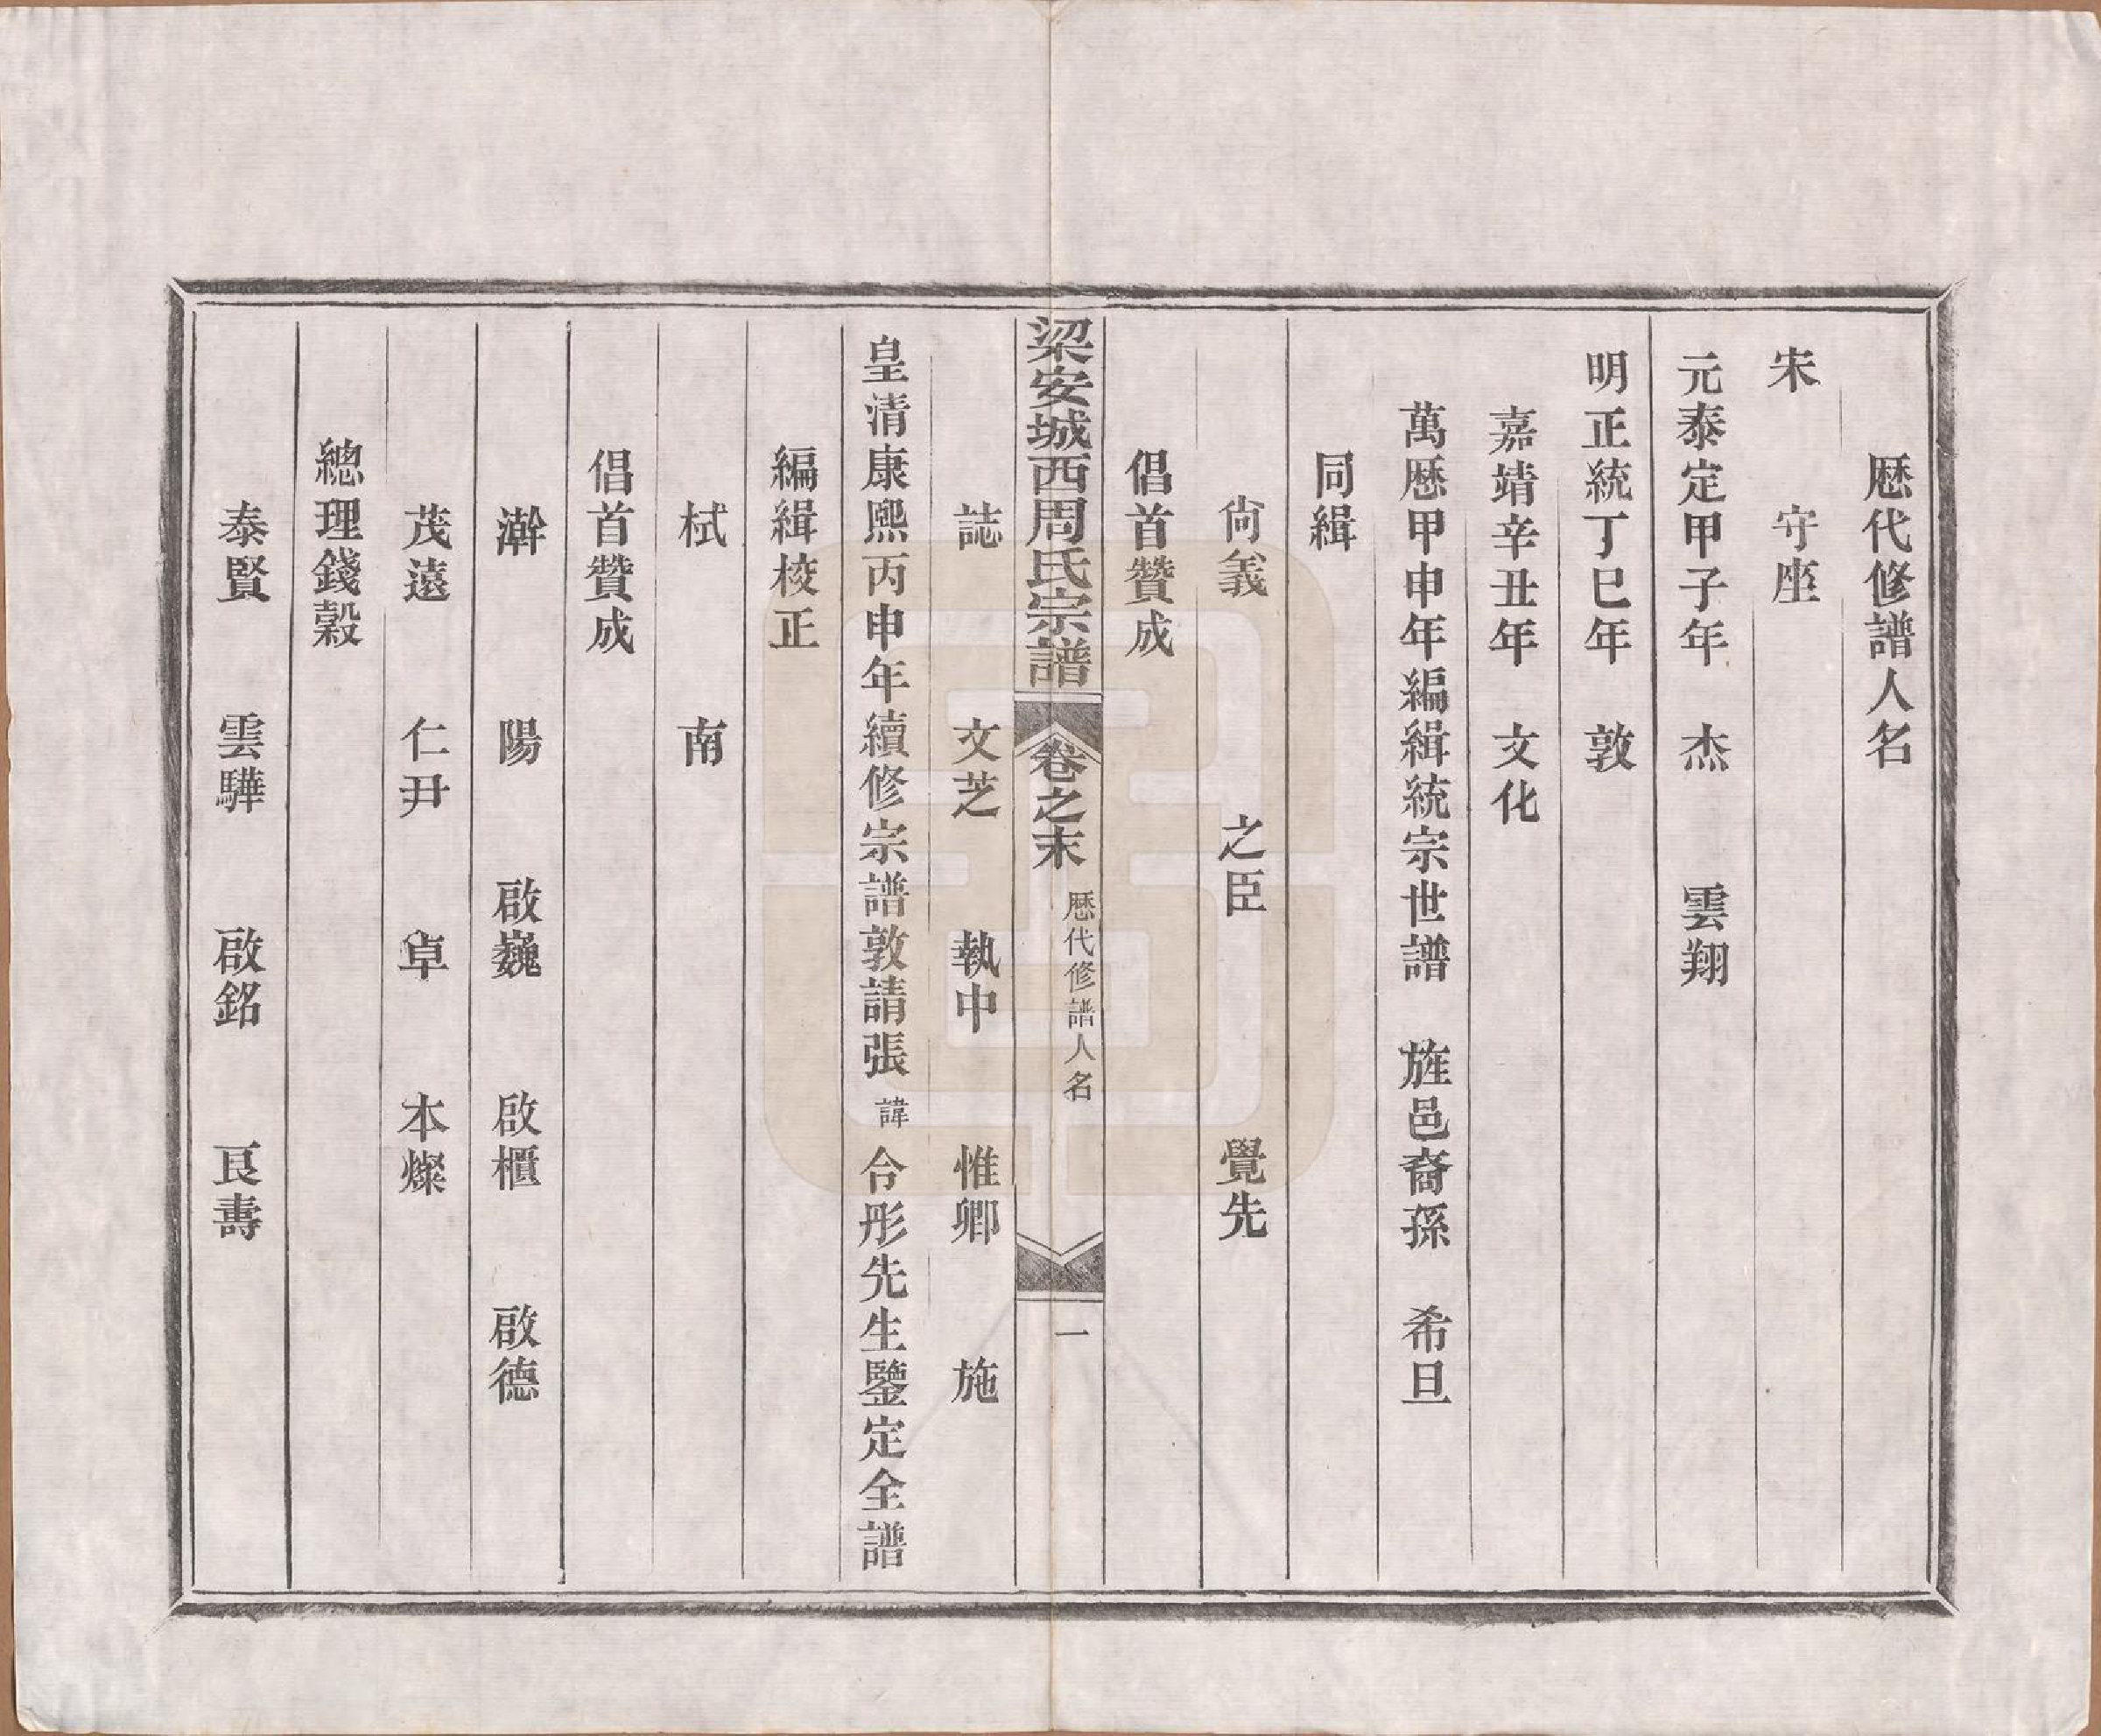 歷代修譜人名
宋　守座
元泰定甲子年　杰　雲翔
明正統丁巳年　敦
嘉靖辛丑年　文化
萬歷甲申年編緝統宗世譜　旌邑裔孫　希旦
同緝
尙義　之臣　覺先
倡首贊成
梁安城西周氏宗譜　卷之末　歷代修譜人名　一
誌　文芝　執中　惟卿　施
皇清康熙丙申年續修宗譜敦請張諱合彤先生鑒定全譜
編緝校正
栻　南
倡首贊成
澣　陽　啟巍　啟櫃　啟德
茂遠　仁尹　卓　本燦
總理錢穀
泰賢　雲驊　啟銘　良壽